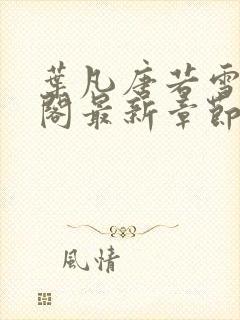 葉凡唐若雪
閣最新章節
風情